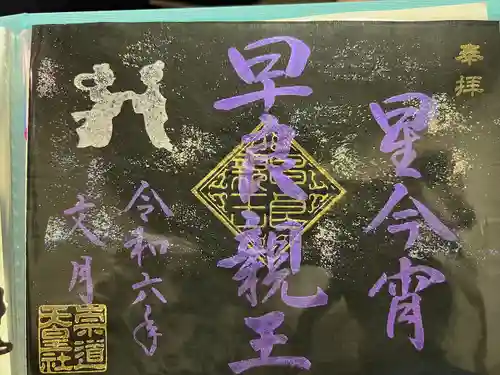 奉拝
星今宵
早良親王
令和六年
文月
崇道
天皇社